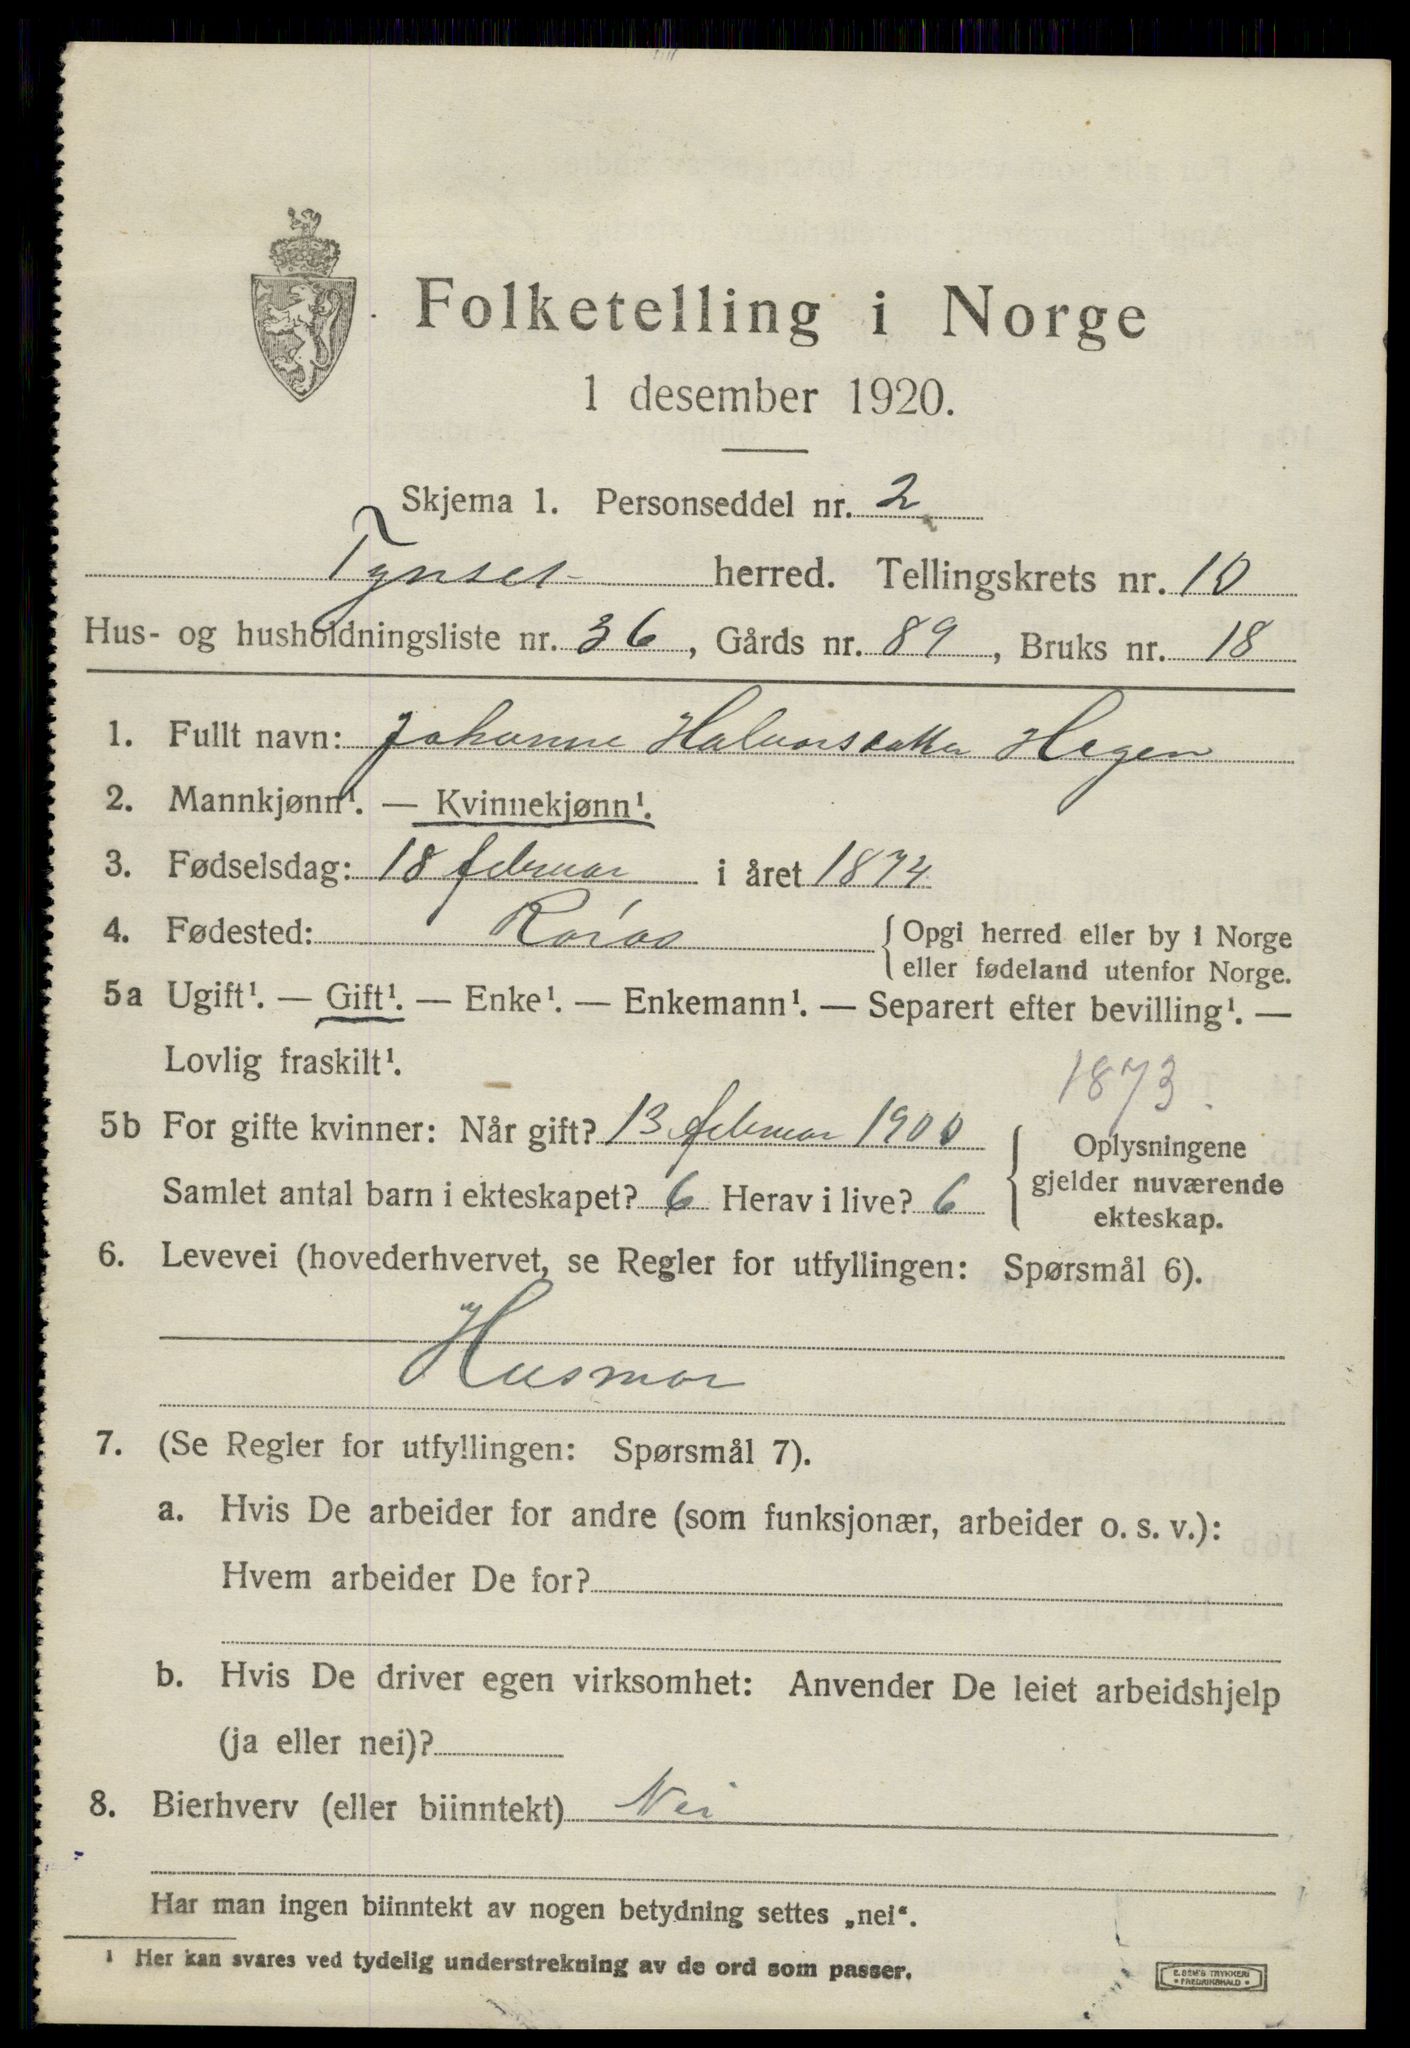 Folketelling i Norge
1 desember 1920.
Skjema 1. Personseddel nr. 2
Tynset herred. Tellingskrets nr. 10
Hus- og husholdningsliste nr. 36, Gårds nr. 89, Bruks nr. 18
1. Fullt navn: Johanne Halvorsdatter Hagen
2. Mannkjønn¹. — Kvinnekjønn¹.
3. Fødselsdag: 18 februar i året 1874
4. Fødested: Røros { Opgi herred eller by i Norge
eller fødeland utenfor Norge.
5a Ugift¹. — Gift¹. — Enke¹. — Enkemann¹. — Separert efter bevilling¹. —
Lovlig fraskilt¹.
1873.
5b For gifte kvinner: Når gift? 13 februar 1900
Samlet antal barn i ekteskapet? 6 Herav i live? 6
{ Oplysningene
gjelder nuværende
ekteskap.
6. Levevei (hovederhvervet, se Regler for utfyllingen: Spørsmål 6).
Husmor
7. (Se Regler for utfyllingen: Spørsmål 7).
a. Hvis De arbeider for andre (som funksjonær, arbeider o. s. v.):
Hvem arbeider De for?
b. Hvis De driver egen virksomhet: Anvender De leiet arbeidshjelp
(ja eller nei)?
8. Bierhverv (eller biinntekt) Nei
Har man ingen biinntekt av nogen betydning settes „nei“.
¹ Her kan svares ved tydelig understrekning av de ord som passer.
E. SEM'S TRYKKERI
• FREDRIKSHALD •